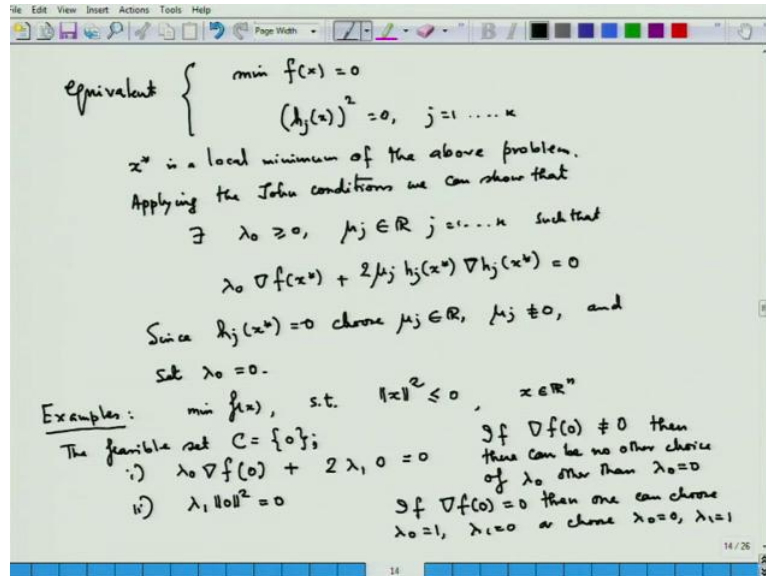 File Edit View Insert Actions Tools Help
Page Width
equivalent { min f(x) = 0
(h_j(x))^2 = 0, j = 1 .... k
x* is a local minimum of the above problem.
Applying the John conditions we can show that
∃ λ_0 ≥ 0, μ_j ∈ ℝ j = 1 .... k such that
λ_0 ∇f(x*) + 2μ_j h_j(x*) ∇h_j(x*) = 0
Since h_j(x*) = 0 choose μ_j ∈ ℝ, μ_j ≠ 0, and
Set λ_0 = 0.
Examples: min f(x), s.t. ||x||^2 ≤ 0, x ∈ ℝ^n
The feasible set C = {0};
i) λ_0 ∇f(0) + 2 λ_1 0 = 0
ii) λ_1 ||0||^2 = 0
If ∇f(0) ≠ 0 then
there can be no other choice
of λ_0 other than λ_0 = 0
If ∇f(0) = 0 then one can choose
λ_0 = 1, λ_1 = 0 or choose λ_0 = 0, λ_1 = 1
14 / 26
14